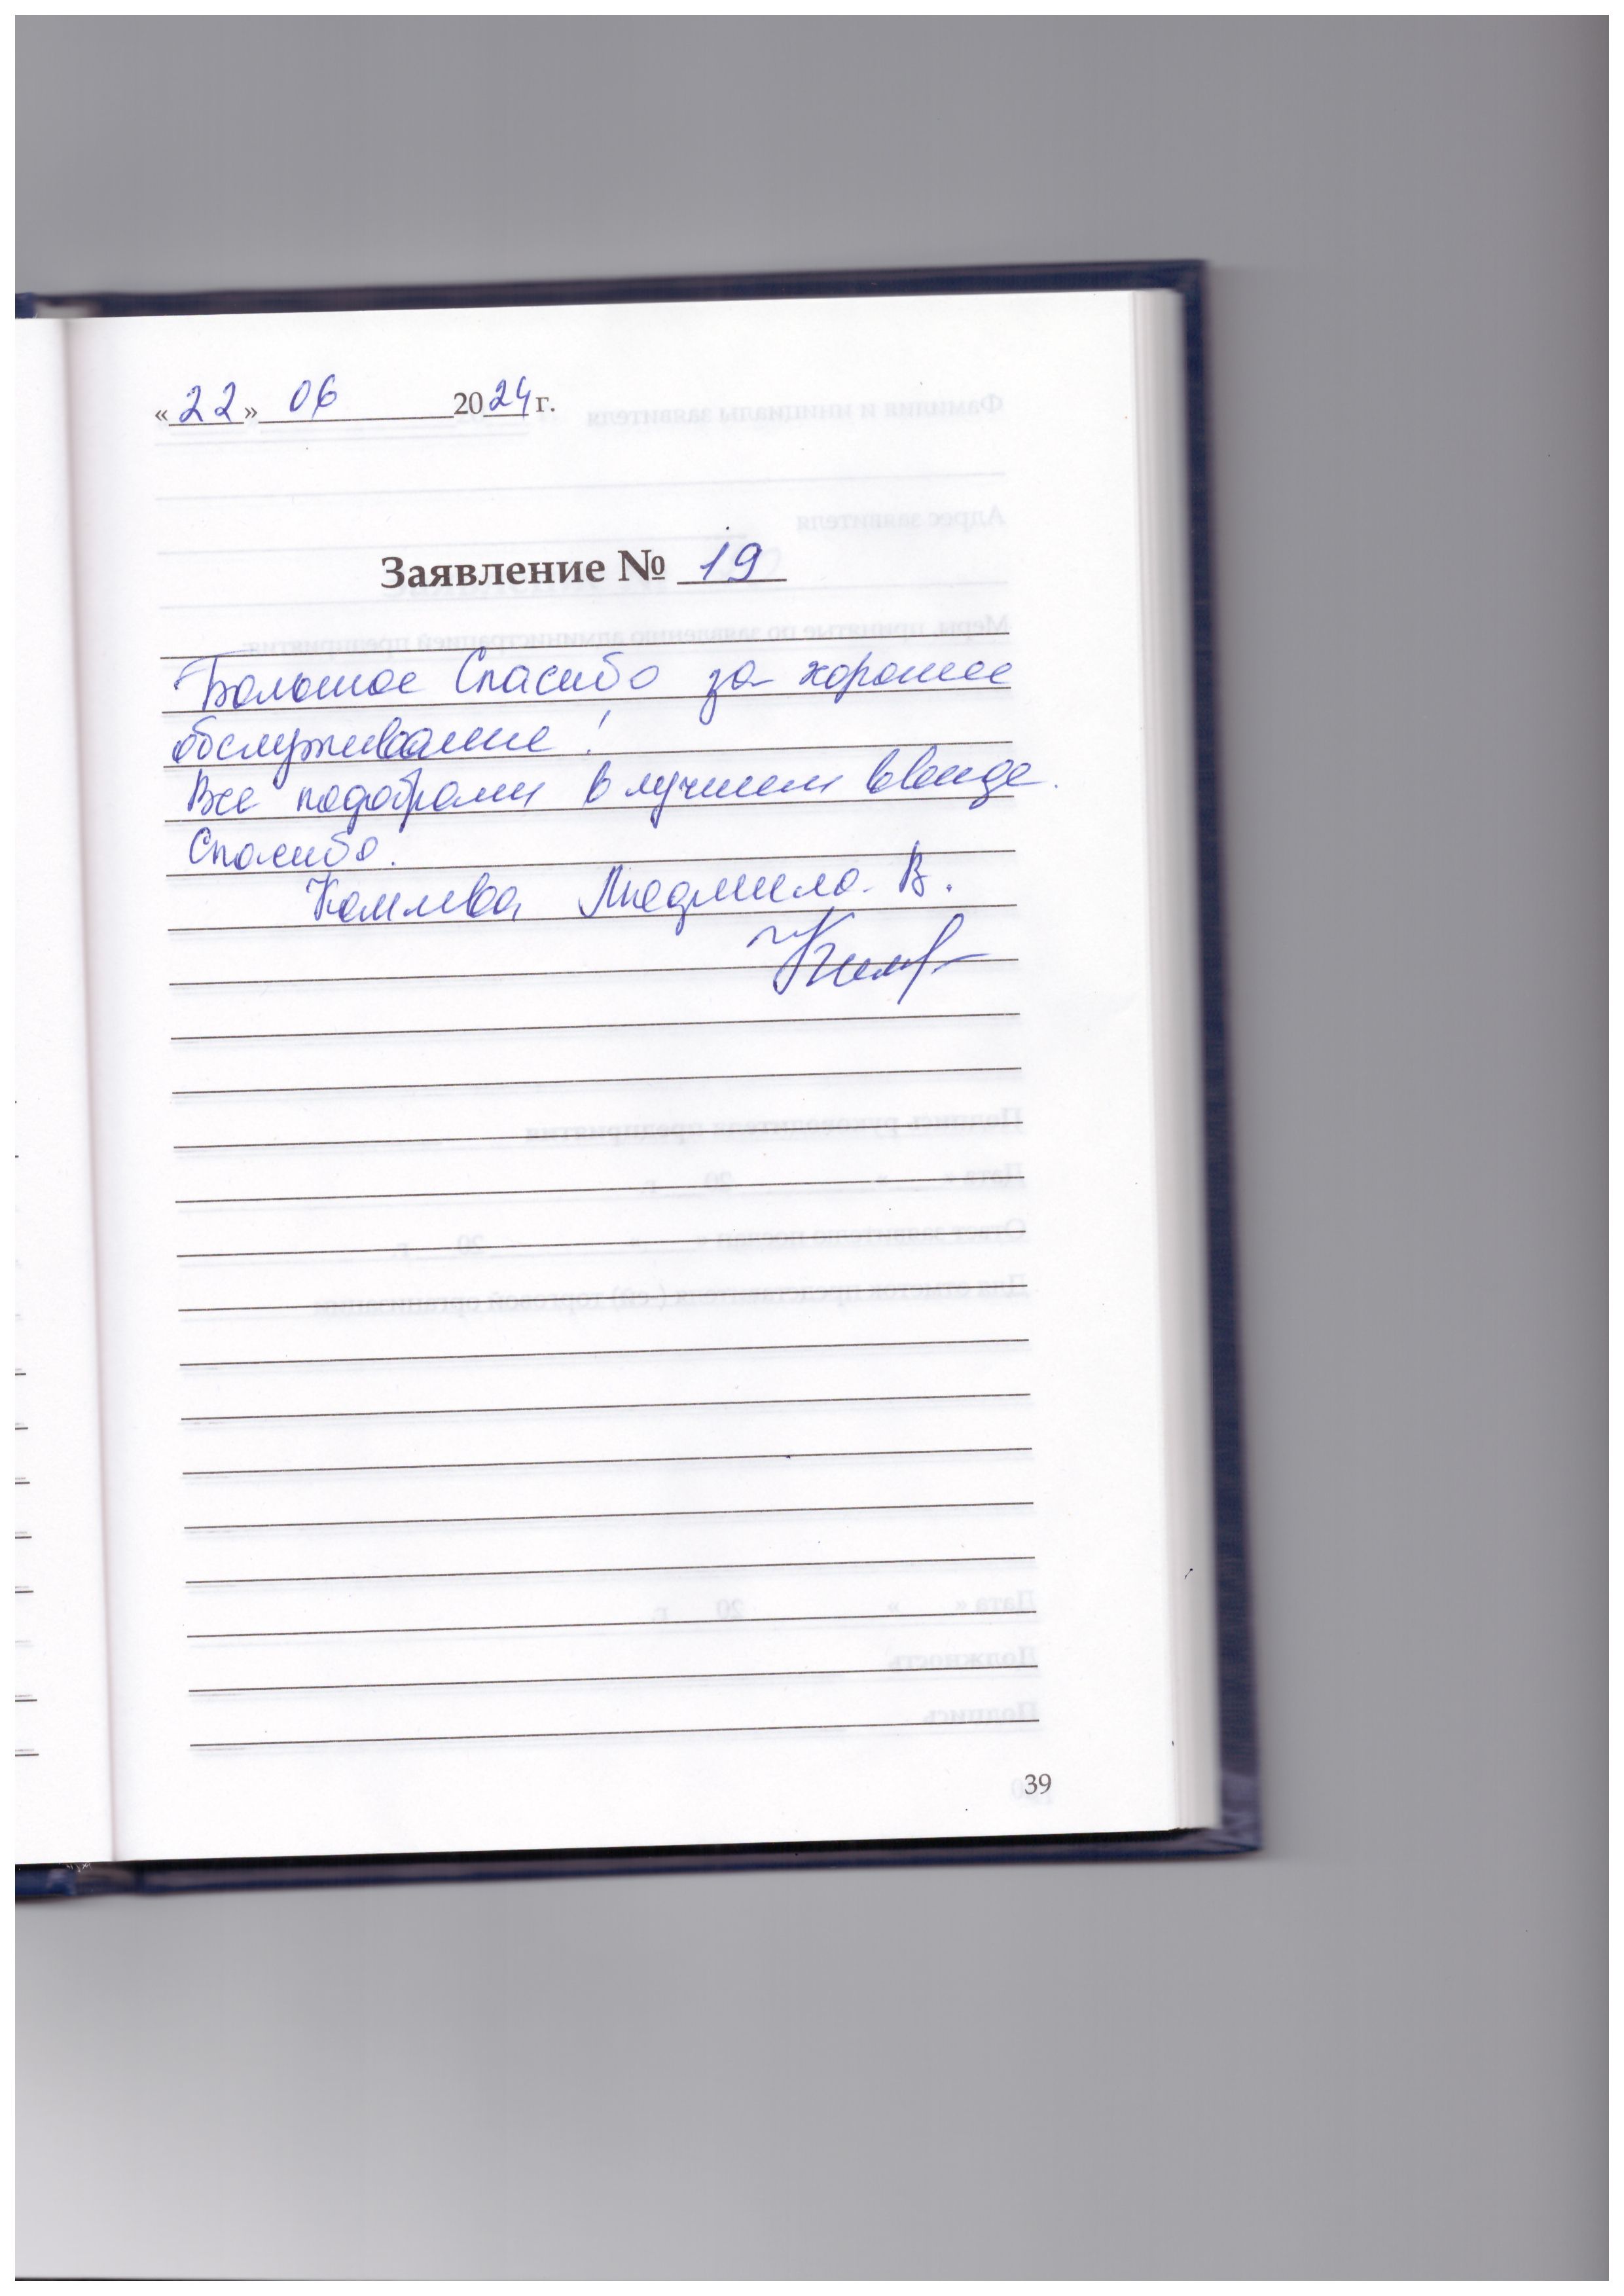 «22» 06 2024 г.
Заявление № 19
Большое Спасибо за хорошее
обслуживание!
Все подобрали в лучшем ввиде.
Спасибо.
Людмила В.
39